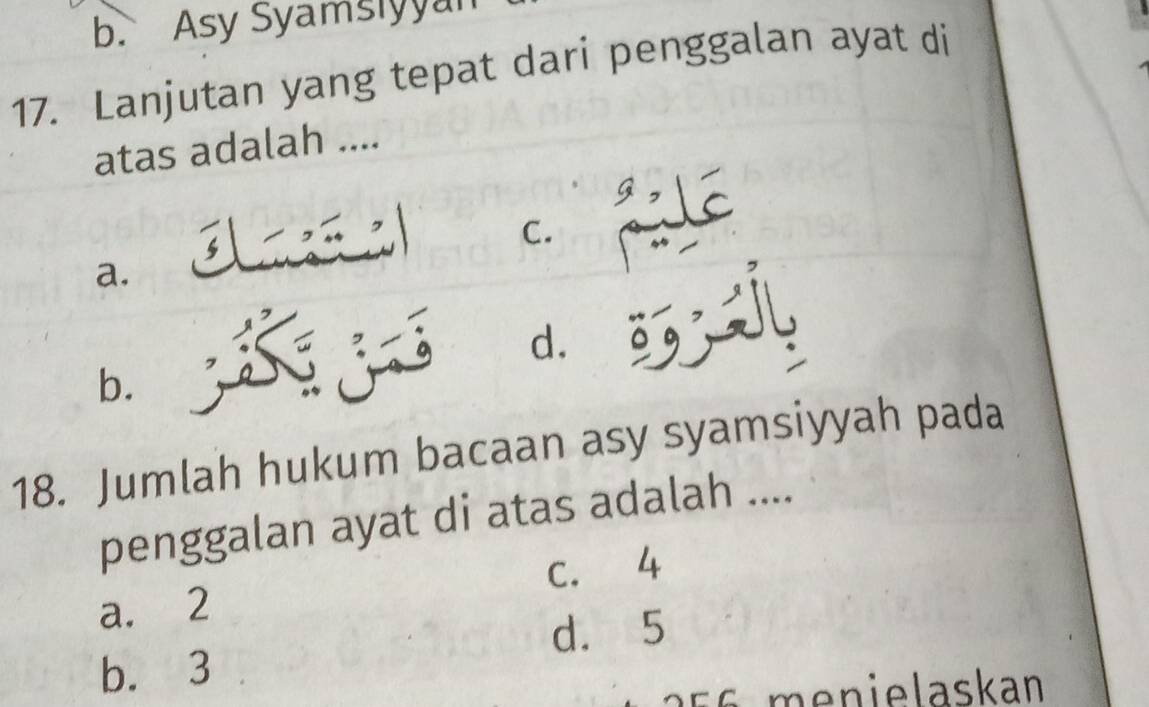 b. Asy Syamsiyyah
17. Lanjutan yang tepat dari penggalan ayat di
atas adalah ....
a. اسْتَمْسَكَ
c. عَلِيْمٌ
b. فَمَنْ يَّكْفُرْ
d. بِالْعُرْوَةِ
18. Jumlah hukum bacaan asy syamsiyyah pada
penggalan ayat di atas adalah ....
a. 2
c. 4
b. 3
d. 5
256 menjelaskan